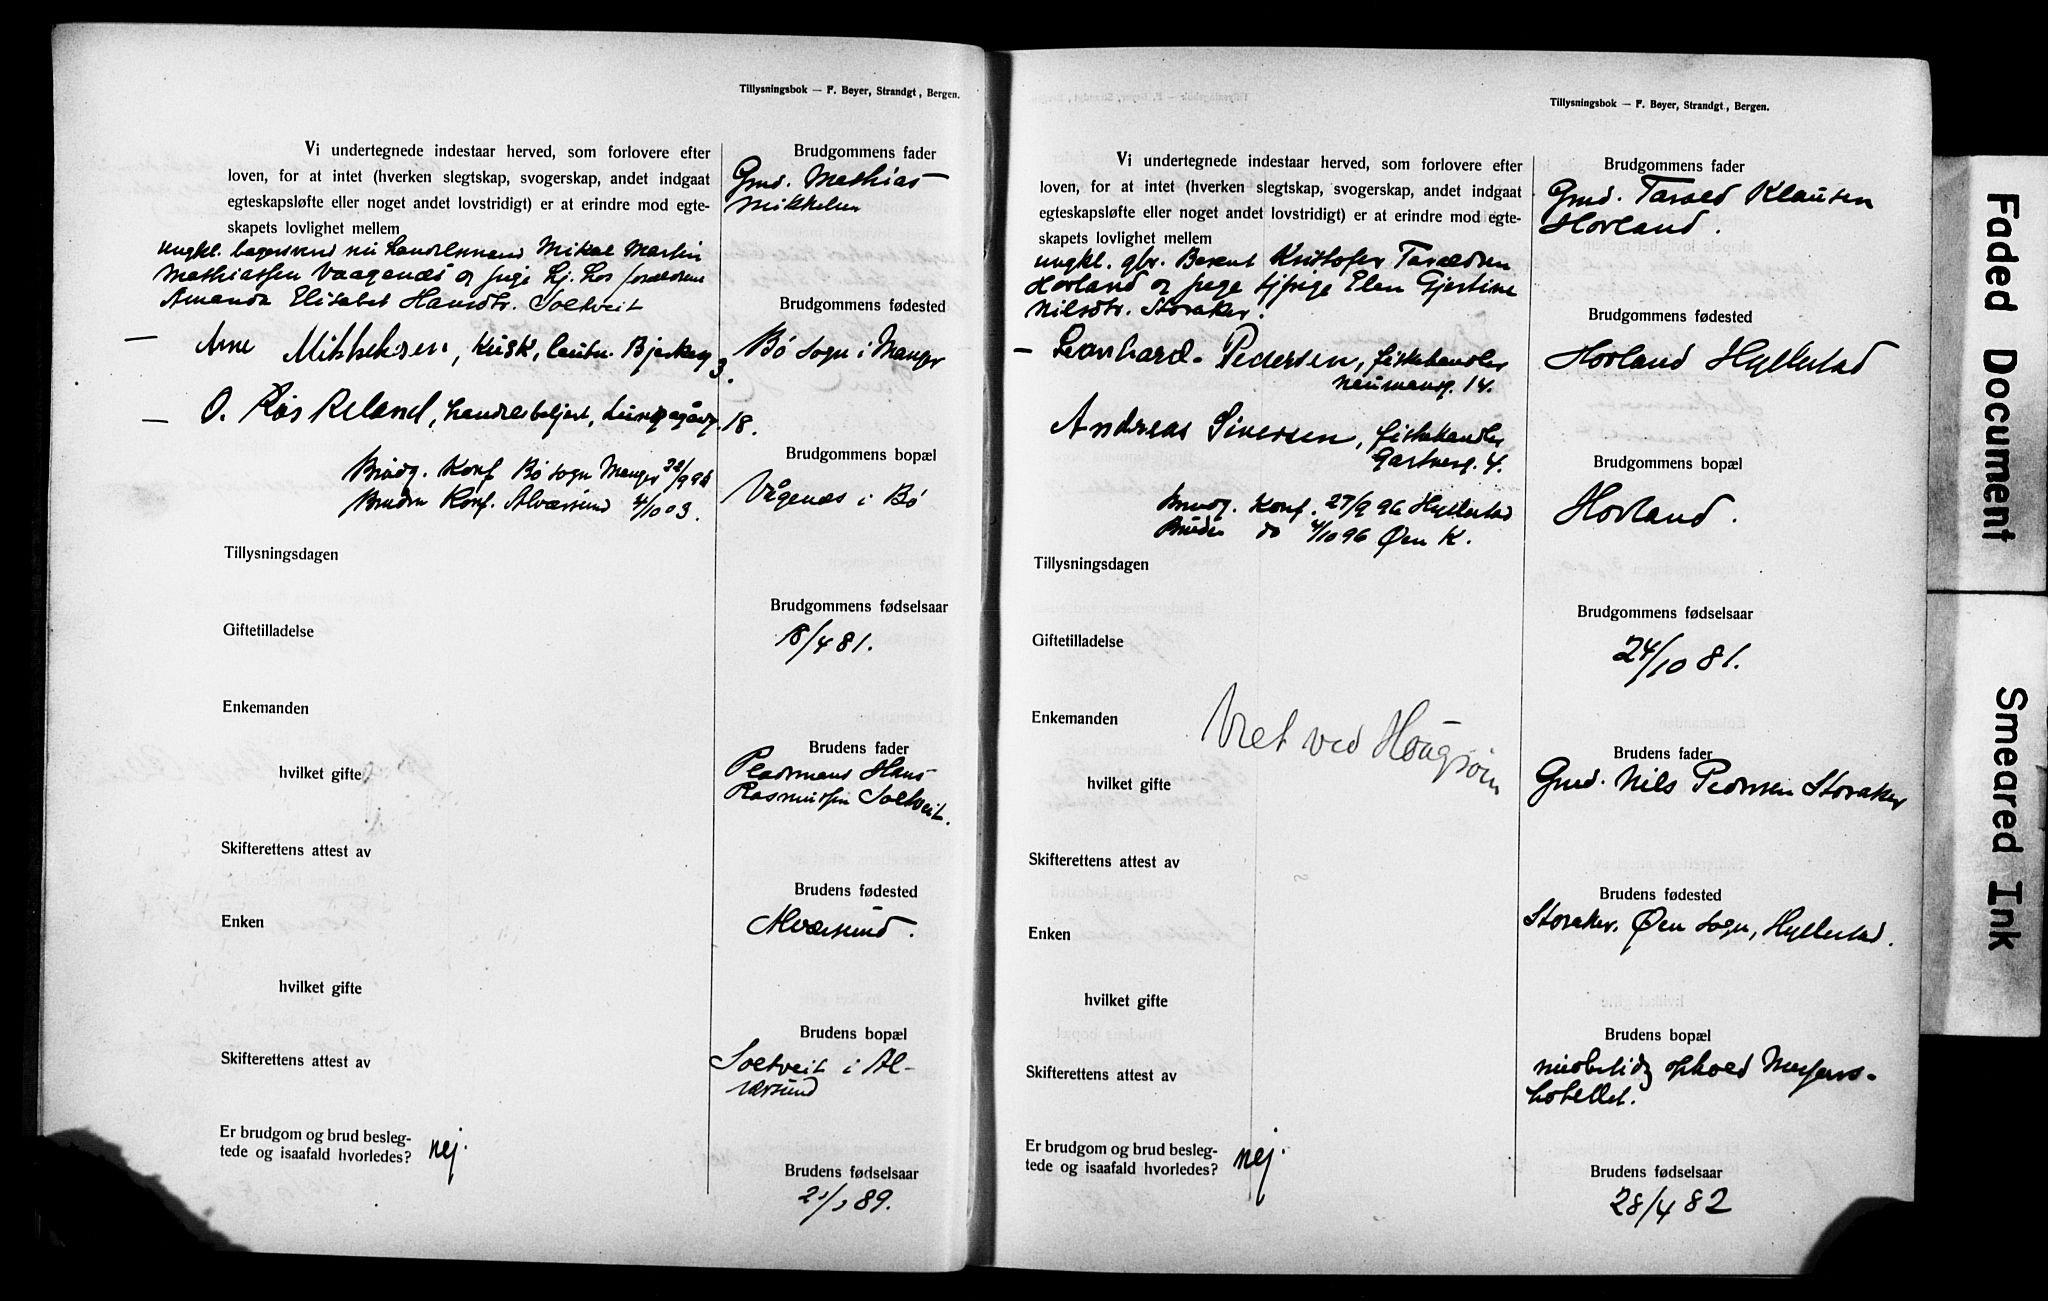 Tillysningsbok — F. Beyer, Strandgt., Bergen.
Vi undertegnede indestaar herved, som forlovere efter
loven, for at intet (hverken slegtskap, svogerskap, andet indgaat
egteskapsløfte eller noget andet lovstridigt) er at erindre mod egte-
skapets lovlighet mellem
ungkl. bagersvend nu handelsmand Mikal Martin
Mathiassen Vaagenæs og pige hj. hos forældrene
Amanda Elisabet Hansdtr. Soltveit
— Arne Mikkelsen, Kusk, Bjerkeg 3.
— O. Røs Reland, handelsbetjent, Lungegårdsg. 18.
Brudg. Konf. Bø sogn Manger
Bruden Konf. Alværsund 4/10 03.
Tillysningsdagen
Giftetilladelse
Enkemanden
hvilket gifte
Skifterettens attest av
Enken
hvilket gifte
Skifterettens attest av
Er brudgom og brud besleg-
tede og isaafald hvorledes? nej.
Brudgommens fader
Gmd. Mathias
Mikkelsen
Brudgommens fødested
Bø sogn i Manger
Brudgommens bopæl
Vågenæs i Bø
Brudgommens fødselsaar
18/4 81.
Brudens fader
Pladsmand Hans
Rasmussen Soltveit.
Brudens fødested
Alværsund.
Brudens bopæl
Soltveit i Al-
værsund
Brudens fødselsaar
89.
Tillysningsbok — F. Beyer, Strandgt., Bergen.
Vi undertegnede indestaar herved, som forlovere efter
loven, for at intet (hverken slegtskap, svogerskap, andet indgaat
egteskapsløfte eller noget andet lovstridigt) er at erindre mod egte-
skapets lovlighet mellem
ungkl. gbr. Berent Kristofer Taraldsen
Hovland og pige tjpige Elen Gjertine
Nilsdtr. Storaker.
— Leonhard Pedersen, fiskehandler
Neumansg. 14.
Andreas Siversen, fiskehandler
Gartnerg. 4.
Brudg. Konf. 27/9 96 Hyllestad
Bruden do 4/10 96 Øen K.
Tillysningsdagen
Giftetilladelse
Enkemanden
Viet ved Hougsøen
hvilket gifte
Skifterettens attest av
Enken
hvilket gifte
Skifterettens attest av
Er brudgom og brud besleg-
tede og isaafald hvorledes? nej.
Brudgommens fader
Gmd. Tarald Klausen
Hovland.
Brudgommens fødested
Hovland Hyllestad
Brudgommens bopæl
Hovland.
Brudgommens fødselsaar
24/10 81.
Brudens fader
Gmd. Nils Pedersen Storaker
Brudens fødested
Storaker. Øen sogn, Hyllestad.
Brudens bopæl
midlertidig ophold
hotellet.
Brudens fødselsaar
28/4 82
Faded Document
Smeared Ink